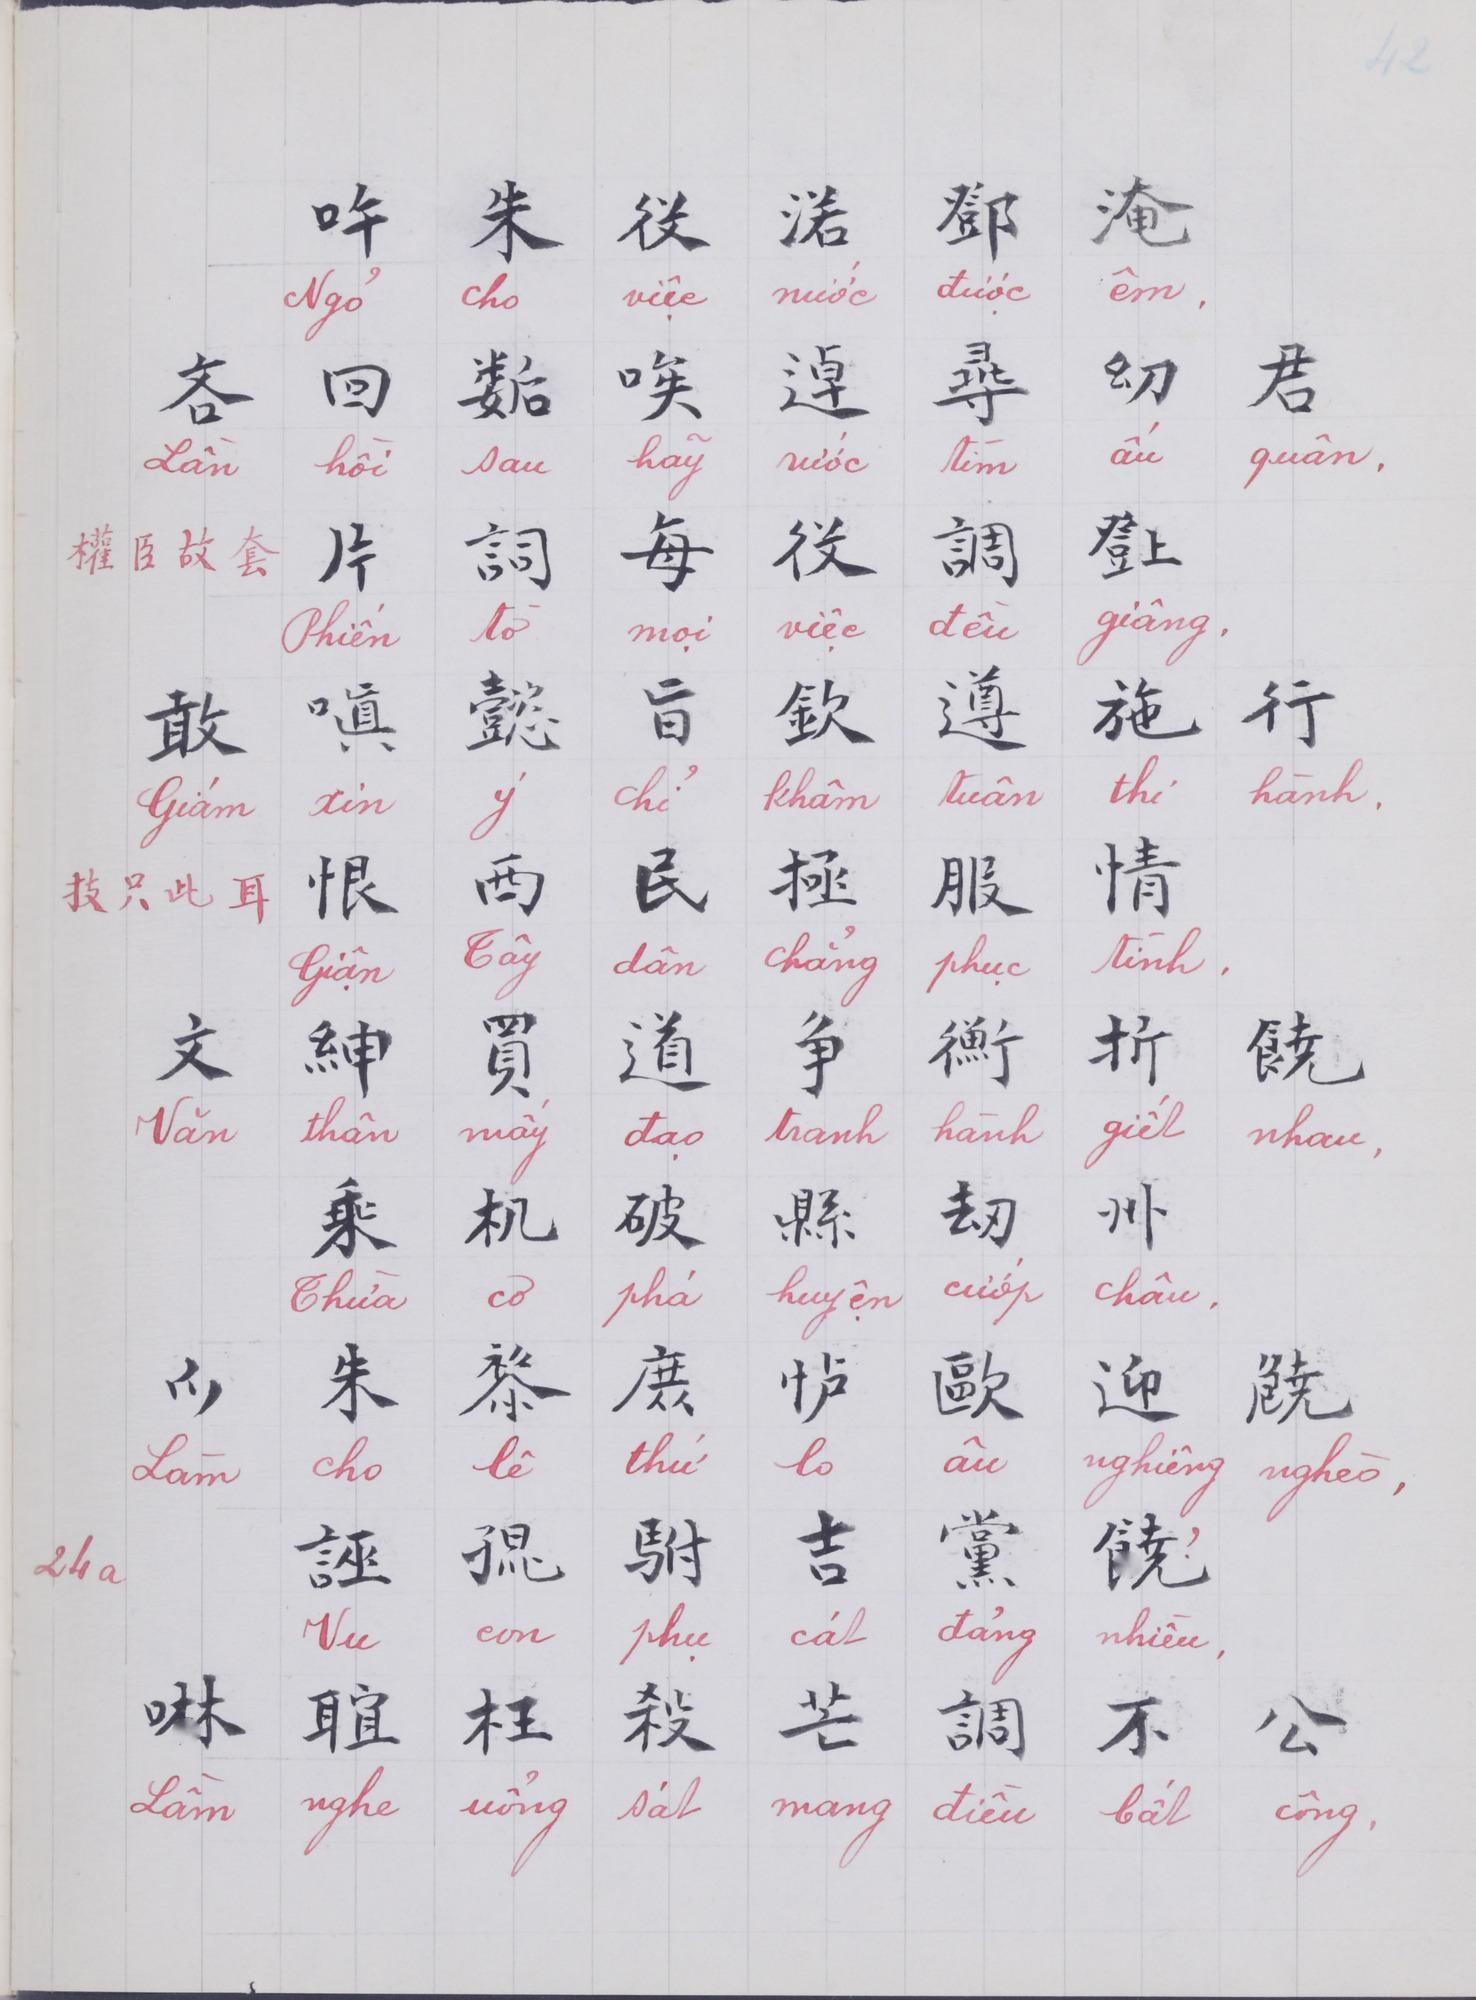 42
吘朱役渃鄧淹
Ngỏ cho việc nước được êm,
吝回𡢐唉逴尋幼君
Lần hồi sau hãy rước tìm ấu quân,
權臣故套 片詞每役調𨖲
Phiến tờ mọi việc đều giâng,
敢嗔懿旨欽遵施行
Giám xin ý chỉ khâm tuân thi hành,
技只此耳 恨西民拯服情
Giận Tây dân chẳng phục tình,
文紳買道爭衡折饒
Văn thân mấy đạo tranh hành giết nhau,
乘机破縣刼州
Thừa cơ phá huyện cướp châu,
朱黎庶𢗼歐迎饒
Làm cho lê thứ lo âu nghiêng nghèo,
24a 誣𡥵駙吉黨饒
Vu con phụ cát đảng nhiều,
啉𦖑枉殺芒調不公
Lầm nghe uổng sát mang điều bất công,